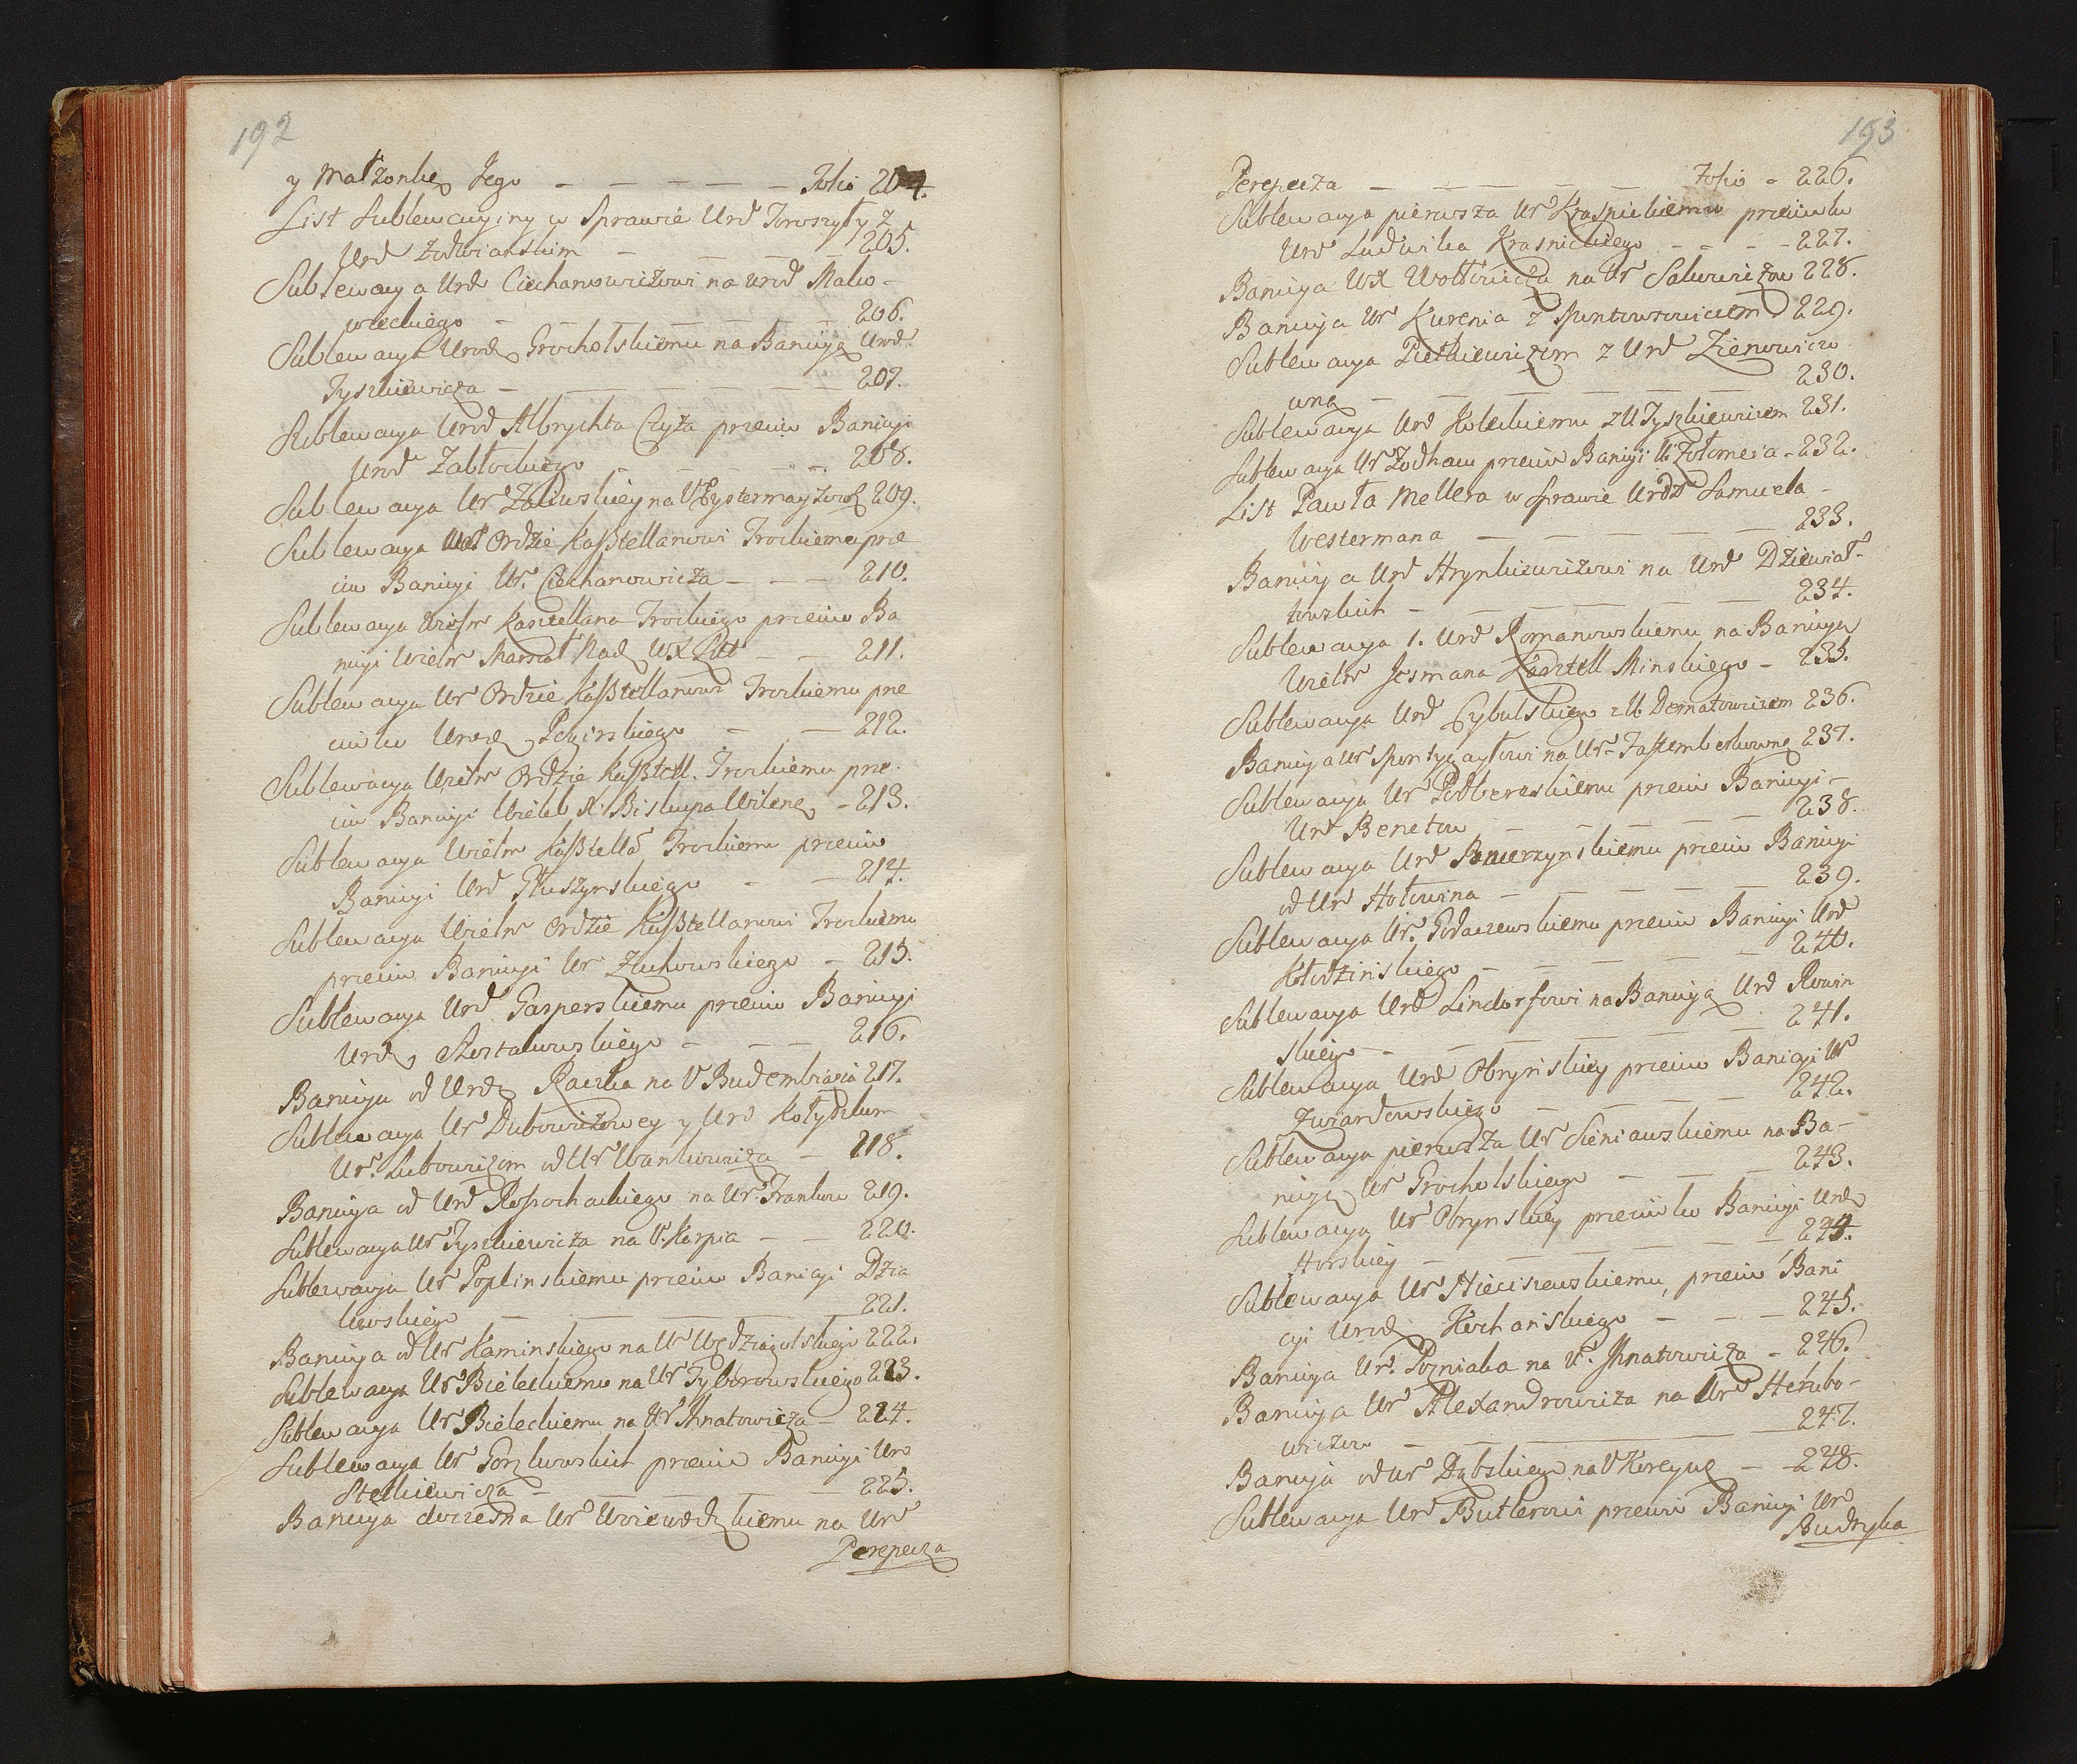 192
y Małzonkę Jego — — — — — Folio 204.
List Sublewacyiny w Sprawie Urd Toroszyły z
Urd Zodwianskim — — — 205.
Sublewacya Urd Ciechanowiczowi na Urod Mako-
wieckiego — — — — — 206.
Sublewacya Urod Grocholskiemu na Banicyą Urod
Tyszkiewicza — — — — — 207.
Sublewacya Urod Albrychta Czyża przeciw Banicyi
Urod Zabłockiego — — — 208.
Sublewacya Ur 209.
Sublewacya Ordzie Kasztellanowi Trockiemu prze
ciw Banicyi Ur. Ciechanowicza — — — 210.
Sublewacya Wielm Kasztellana Trockiego przeciw Ba
nicyi Wielm Marszał Nad WXLitt — — 211.
Sublewacya Ur Ordzie Kasztellanowi Trockiemu prze
ciwko Urodz — — 212.
Sublewacya Wielm Ordzie Kasztell. Trockiemu prze-
ciw Banicyi Wieleb X Biskupa Wilenę — 213.
Sublewacya Wielm Kasztella Trockiemu przeciw
Banicyi Urd Głuszynskiego — — 214.
Sublewacya Wielm Ordzie Kasztellanowi Trockiemu
przeciw Banicyi Ur Zukowskiego — 215.
Sublewacya Urd Gasperskiemu przeciw Banicyi
Urdz Szostakowskiego — — — 216.
Banicya od Urdz Raczka na U 217.
Sublewacya Ur Dubowiczowey y Urd
Ur. Lubowiczom od Ur Wankowicza — 218.
Banicya od Urd Rossochackiego na Ur. Frankow 219.
Sublewacya Ur Tyszkiewicza na U. Karpia — — 220.
Sublewacya Ur Poplinskiemu przeciw Banicyi Dzia
kowskiego — — — 221.
Banicya od Ur Kaminskiego na Ur Wędziagolskiego 222.
Sublewacya Ur Bieleckiemu na Ur Tyborowskiego 223.
Sublewacya Ur Bieleckiemu na Ur Ihnatowicza — 224.
Sublewacya Ur Gorzkowskich przeciw Banicyi Ur
Stetkiewicza — — — 225.
Banicya doczesna Ur Woiewodzkiemu na Ur
Perepecza
193
Perepecza — — — — — Folio — 226.
Sublewacya pierwsza Ur Krasnickiemu przeciwko
Urd Ludwika Krasnickiego — — — — 227.
Banicya WX Wołłowicza na Ur Sakowiczow 228.
Banicya Ur Kurenia z 229.
Sublewacya Pietkiewiczom z Urd Zienowiczo
wną — — — — 230.
Sublewacya Urd Koleckiemu z U Tyszkiewiczem 231.
Sublewacya Ur przeciw Banicyi 232.
List Pawła Mellera w Sprawie Urdz Samuela -
Westermana — — — — 233.
Banicya Urd Hrynkiewiczowi na Urd Dziewiał-
towskich — — — — 234.
Sublewacya 1. Urd Romanowskiemu na Banicyą
Wielm Jesmana Kasztell Minskiego — 235.
Sublewacya Urd Cybulskiego z U. Dernatowiczem 236.
Banicya Ur na Ur 237.
Sublewacya Ur Podbereskiemu przeciw Banicyi -
Urd Benetow — — — — — 238.
Sublewacya Urd przeciw Banicyi
od Ur Hołowina — — — — — 239.
Sublewacya Ur. Godaczewskiemu przeciw Banicyi Urd
Kłodzinskiego — — — — — 240.
Sublewacya Urd Lindorfowi na Banicyą Urd Rowin
skiego — — — — — 241.
Sublewacya Urd Obrynskiey przeciw Banicyi Ur
Zwiardowskiego — — — — 242.
Sublewacya pierwsza Ur Sieniawskiemu na Ba-
nicyę Ur Grocholskiego — — — 243.
Sublewacya Ur Obrynskiey przeciwko Banicyi Urdz
Horskiey — — — — — 244.
Sublewacya Ur przeciw Bani
cyi Urodz Kochanskiego — — — 245.
Banicya Ur. Pozniaka na U. Ihnatowicza — 246.
Banicya Ur Alexandrowicza na Urd Herubo-
wiczow — — — 247.
Banicya od Ur Dąbskiego na U — — 248.
Sublewacya Urd Butlerowi przeciw Banicyi Ur
Budryka